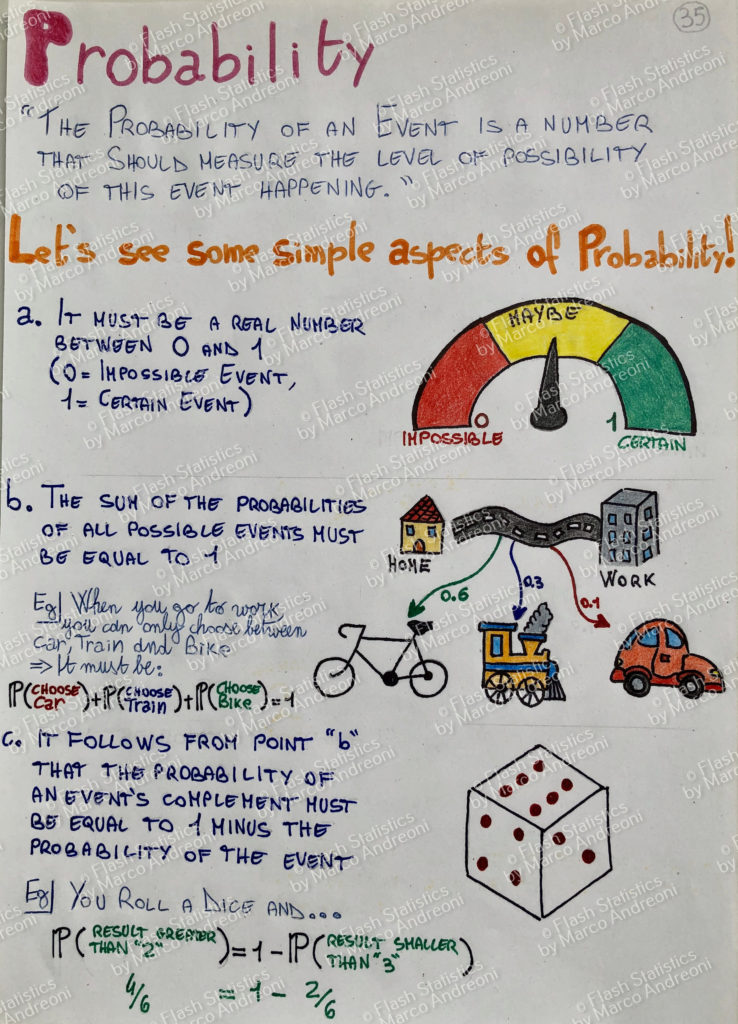 35
Probability
"THE PROBABILITY OF AN EVENT IS A NUMBER
THAT SHOULD MEASURE THE LEVEL OF POSSIBILITY
OF THIS EVENT HAPPENING."
Let's see some simple aspects of Probability!
a. IT MUST BE A REAL NUMBER
BETWEEN 0 AND 1
(0 = IMPOSSIBLE EVENT,
1 = CERTAIN EVENT)
MAYBE
0
1
IMPOSSIBLE
CERTAIN
b. THE SUM OF THE PROBABILITIES
OF ALL POSSIBLE EVENTS MUST
BE EQUAL TO 1
HOME
WORK
0.6
0.3
0.1
Eg| When you go to work
you can only choose between
Car, Train and Bike
⇒ It must be:
ℙ(CHOOSE Car)+ℙ(CHOOSE Train)+ℙ(CHOOSE Bike)=1
c. IT FOLLOWS FROM POINT "b"
THAT THE PROBABILITY OF
AN EVENT'S COMPLEMENT MUST
BE EQUAL TO 1 MINUS THE
PROBABILITY OF THE EVENT
Eg| YOU ROLL A DICE AND...
ℙ(RESULT GREATER THAN "2")=1-ℙ(RESULT SMALLER THAN "3")
4/6 = 1 - 2/6
© Flash Statistics
by Marco Andreoni